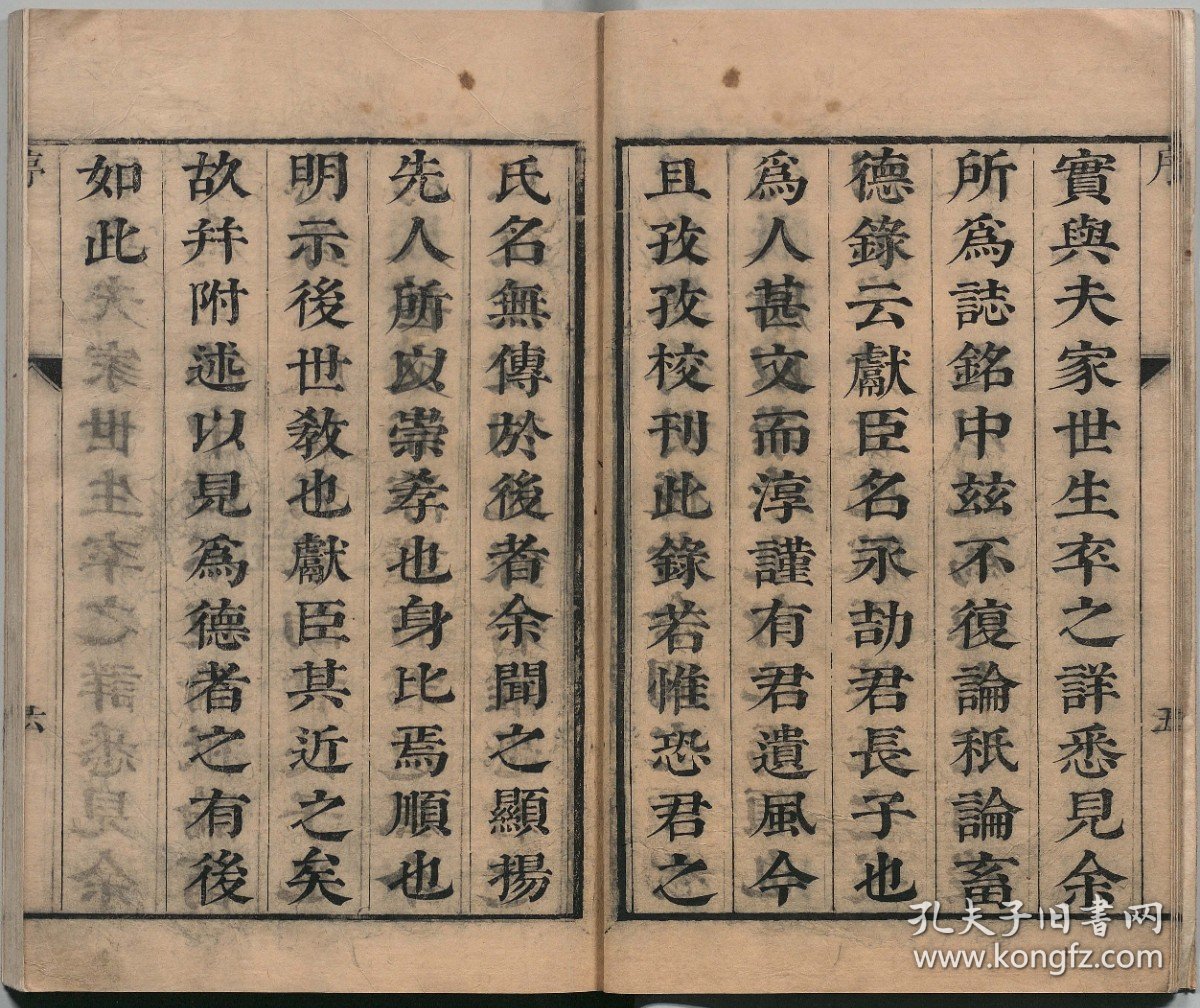 序
五
實與夫家世生卒之詳悉見余
所爲誌銘中玆不復論秖論畜
德錄云獻臣名永劼君長子也
爲人甚文而淳謹有君遺風今
且孜孜校刊此錄若惟恐君之
氏名無傳於後者余聞之顯揚
先人所以崇孝也身比焉順也
明示後世敎也獻臣其近之矣
故幷附述以見爲德者之有後
如此
六
孔夫子旧书网
www.kongfz.com